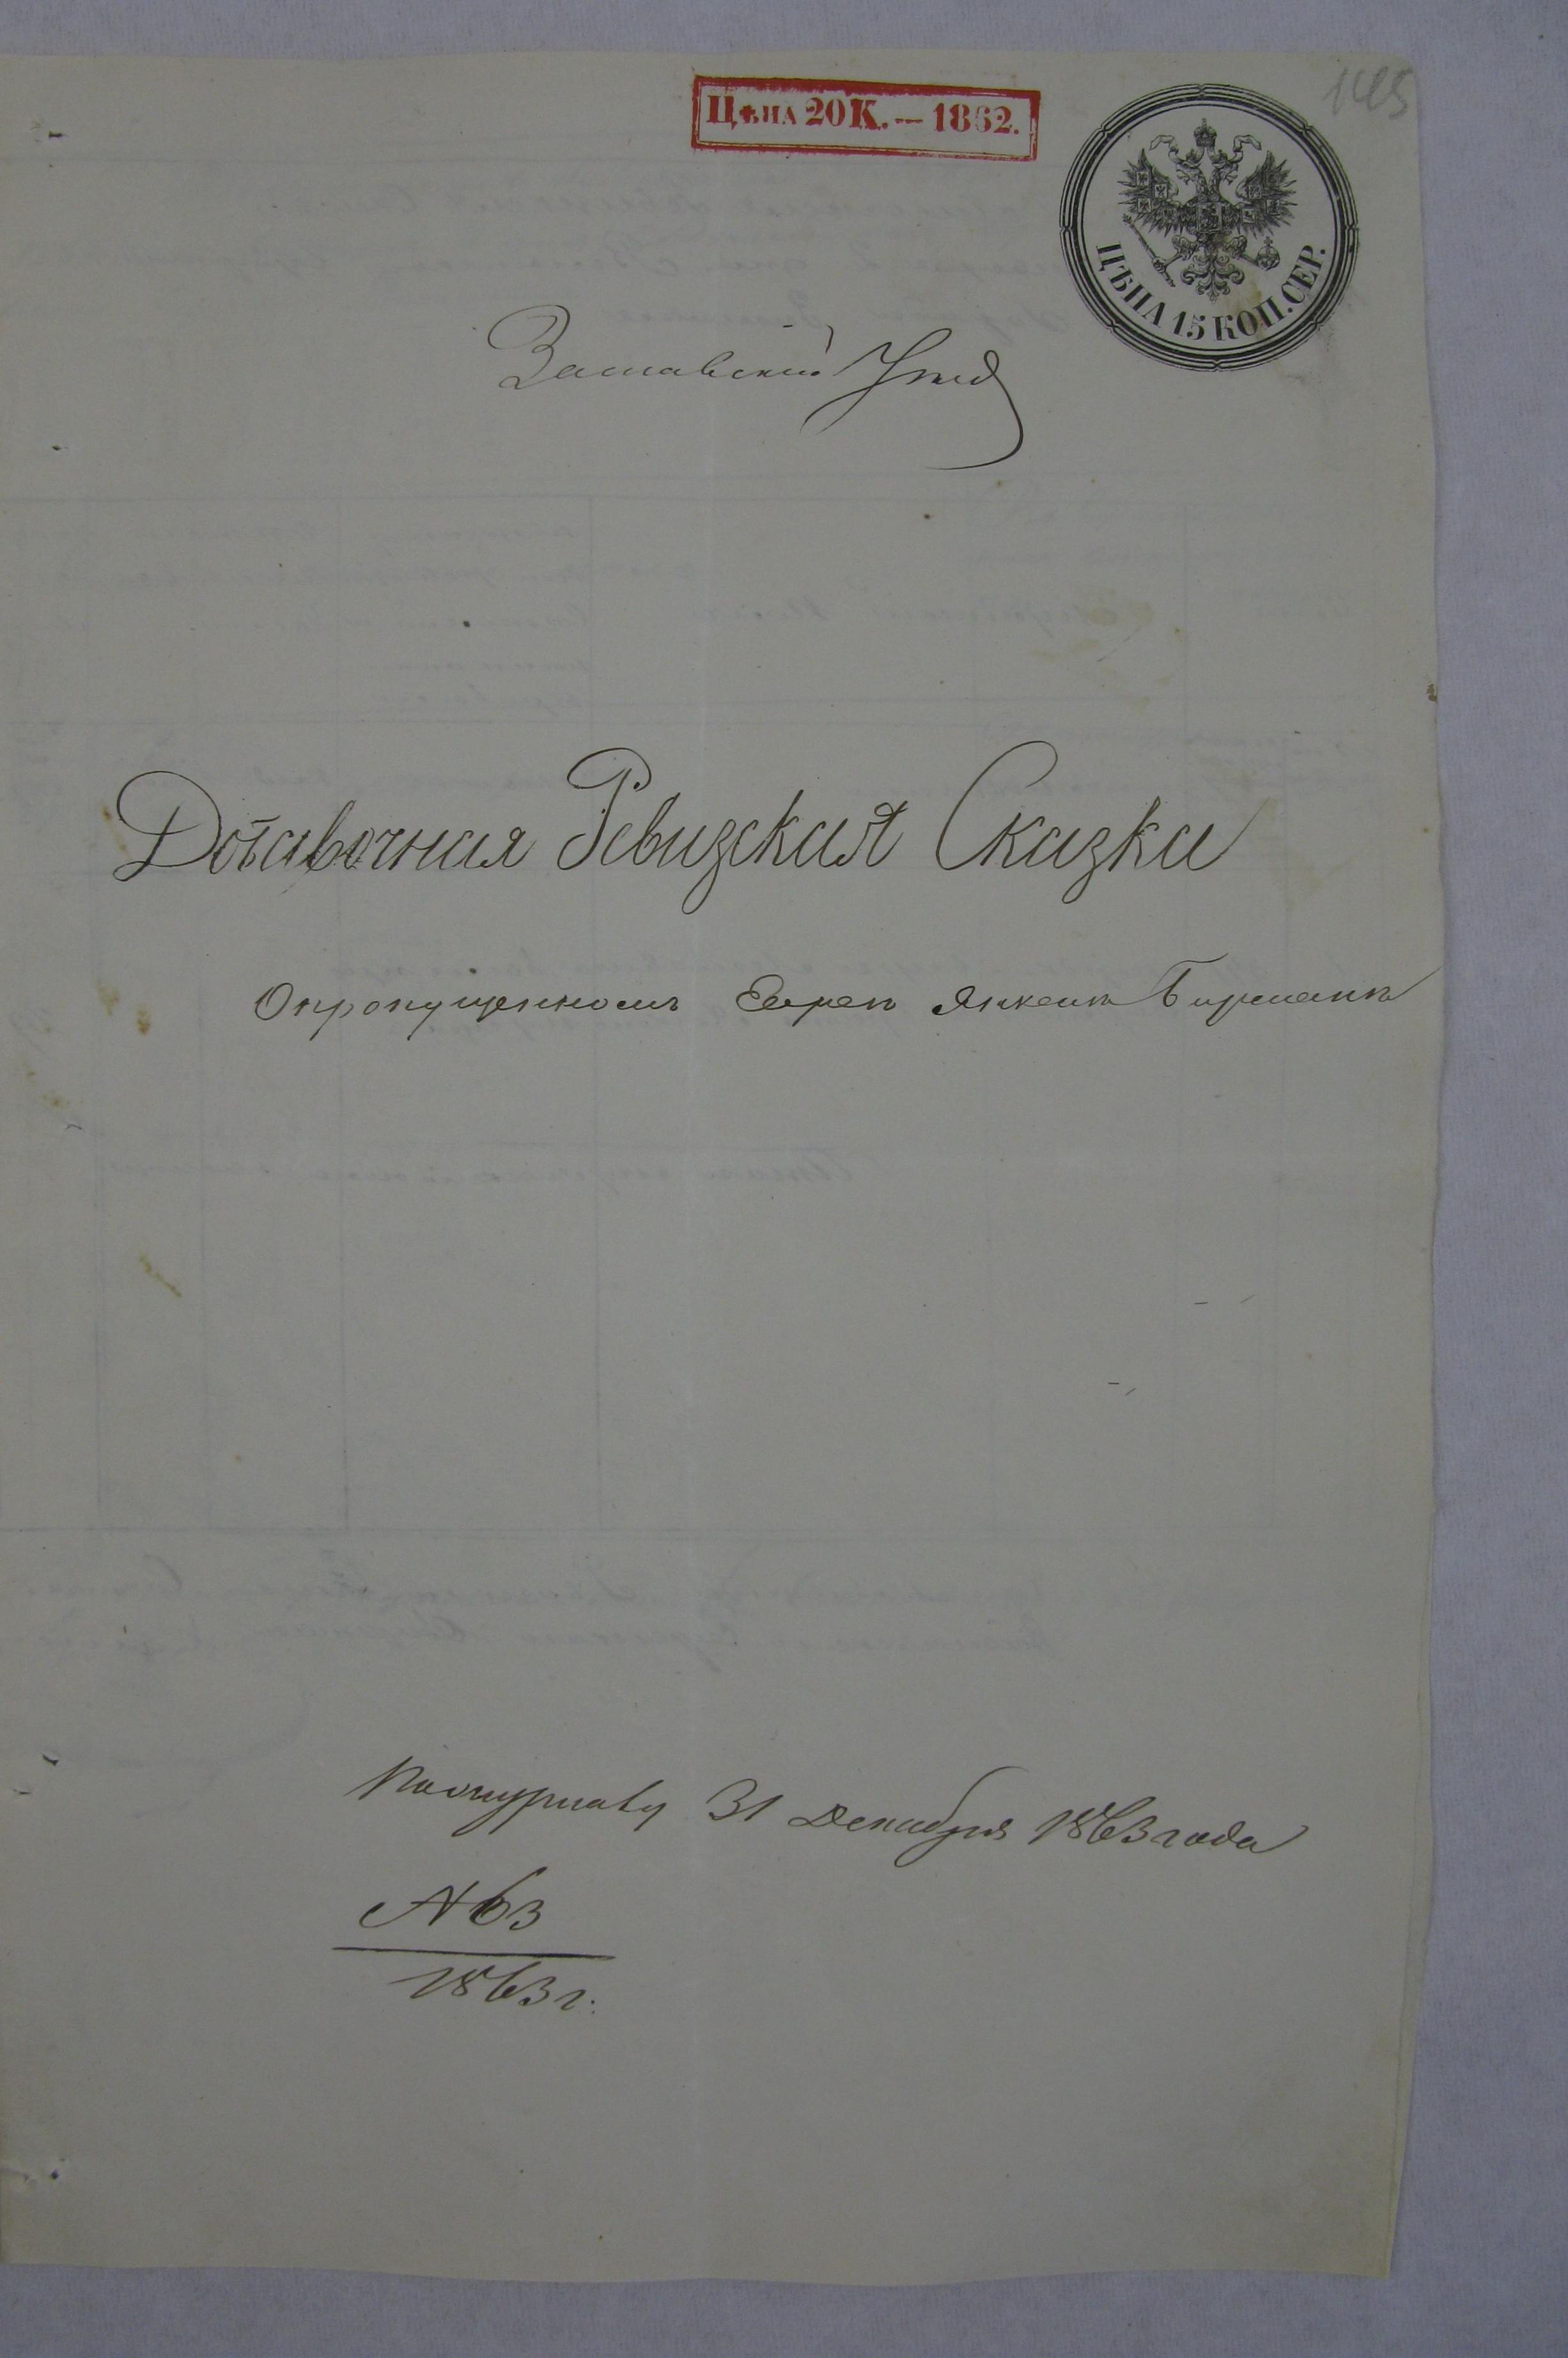 145
Цѣна 20 К. — 1862.
ЦѢНА 15 КОП. СЕР.
Заславскій Уѣздъ
Добавочная Ревизская Сказка
О пропущенномъ Евреѣ Янкелѣ Бирманѣ
По журналу 31 Декабря 1863 года
№ 63
1863 г.